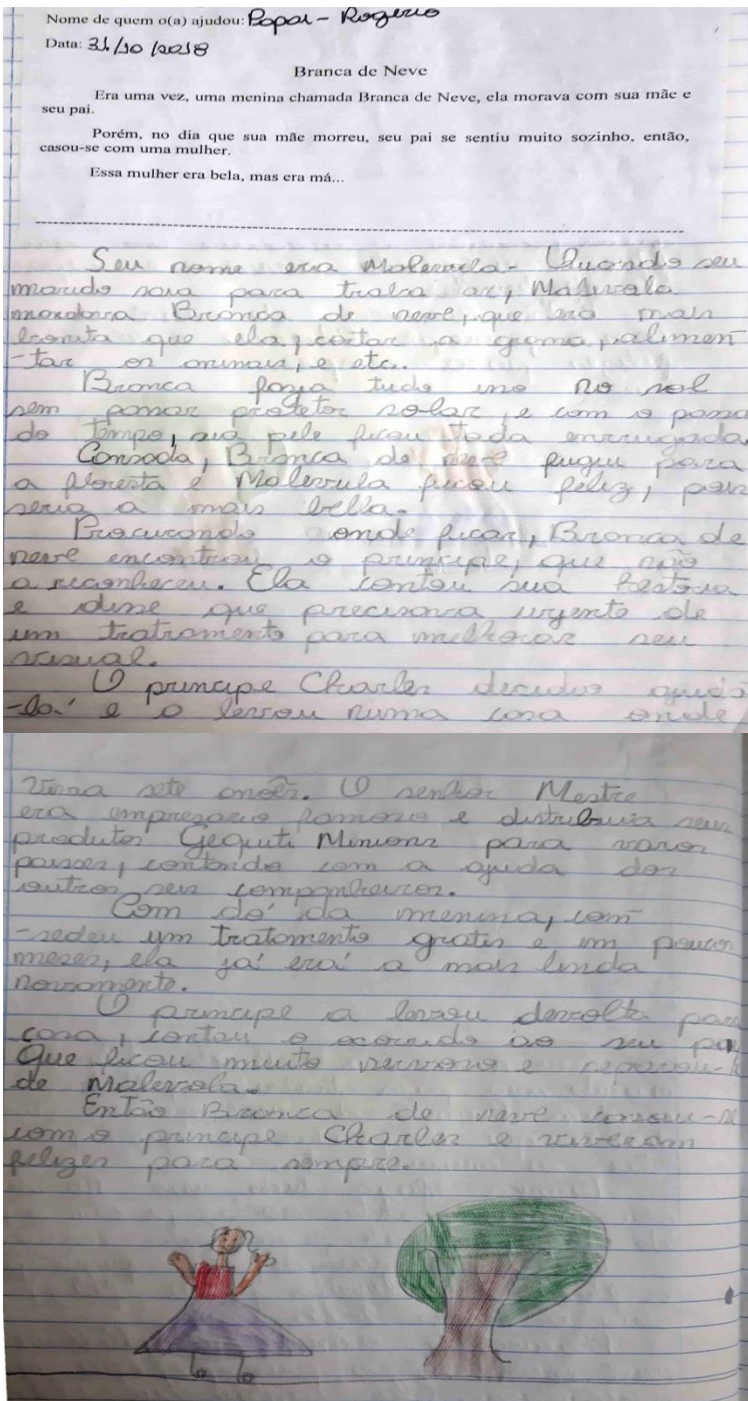 Nome de quem o(a) ajudou: Papai - Rogério
Data: 31/10/2018
Branca de Neve
Era uma vez, uma menina chamada Branca de Neve, ela morava com sua mãe e
seu pai.
Porém, no dia que sua mãe morreu, seu pai se sentiu muito sozinho, então,
casou-se com uma mulher.
Essa mulher era bela, mas era má...
Seu nome era Malevola. Quando seu
marido saia para traba ar, Malevola
mandava Branca de neve, que era mais
bonita que ela, cortar a grama, alimen
-tar os animais, e etc.
Branca fazia tudo no sol
sem passar protetor solar, e com o passa
do tempo, sua pele ficou toda enrrugada
Cansada, Branca de neve fugiu para
a floresta e Malevola ficou feliz, pois
seria a mais bella.
Procurando onde ficar, Branca de
neve encontrou o principe, que não
a reconheceu. Ela contou sua
e disse que precisava urgente de
um tratamento para melhorar seu
visual.
O principe Charles decidiu ajudá
-la. e a levou numa casa onde
vivia sete anões. O senhor Mestre
era empresario famoso e distribuia seus
produtos Gequiti Minions para varios
paises, contando com a ajuda dos
outros seus companheiros.
Com dó da menina, com
-sedeu um tratamento gratis e em poucos
meses, ela já erá a mais linda
novamente.
O principe a levou devolta para
casa, contou o ocorrido ao seu pai,
Que ficou muito nervoso e separou-
de Malevola.
Então Branca de neve
com o principe Charles e viveram
felizes para sempre.